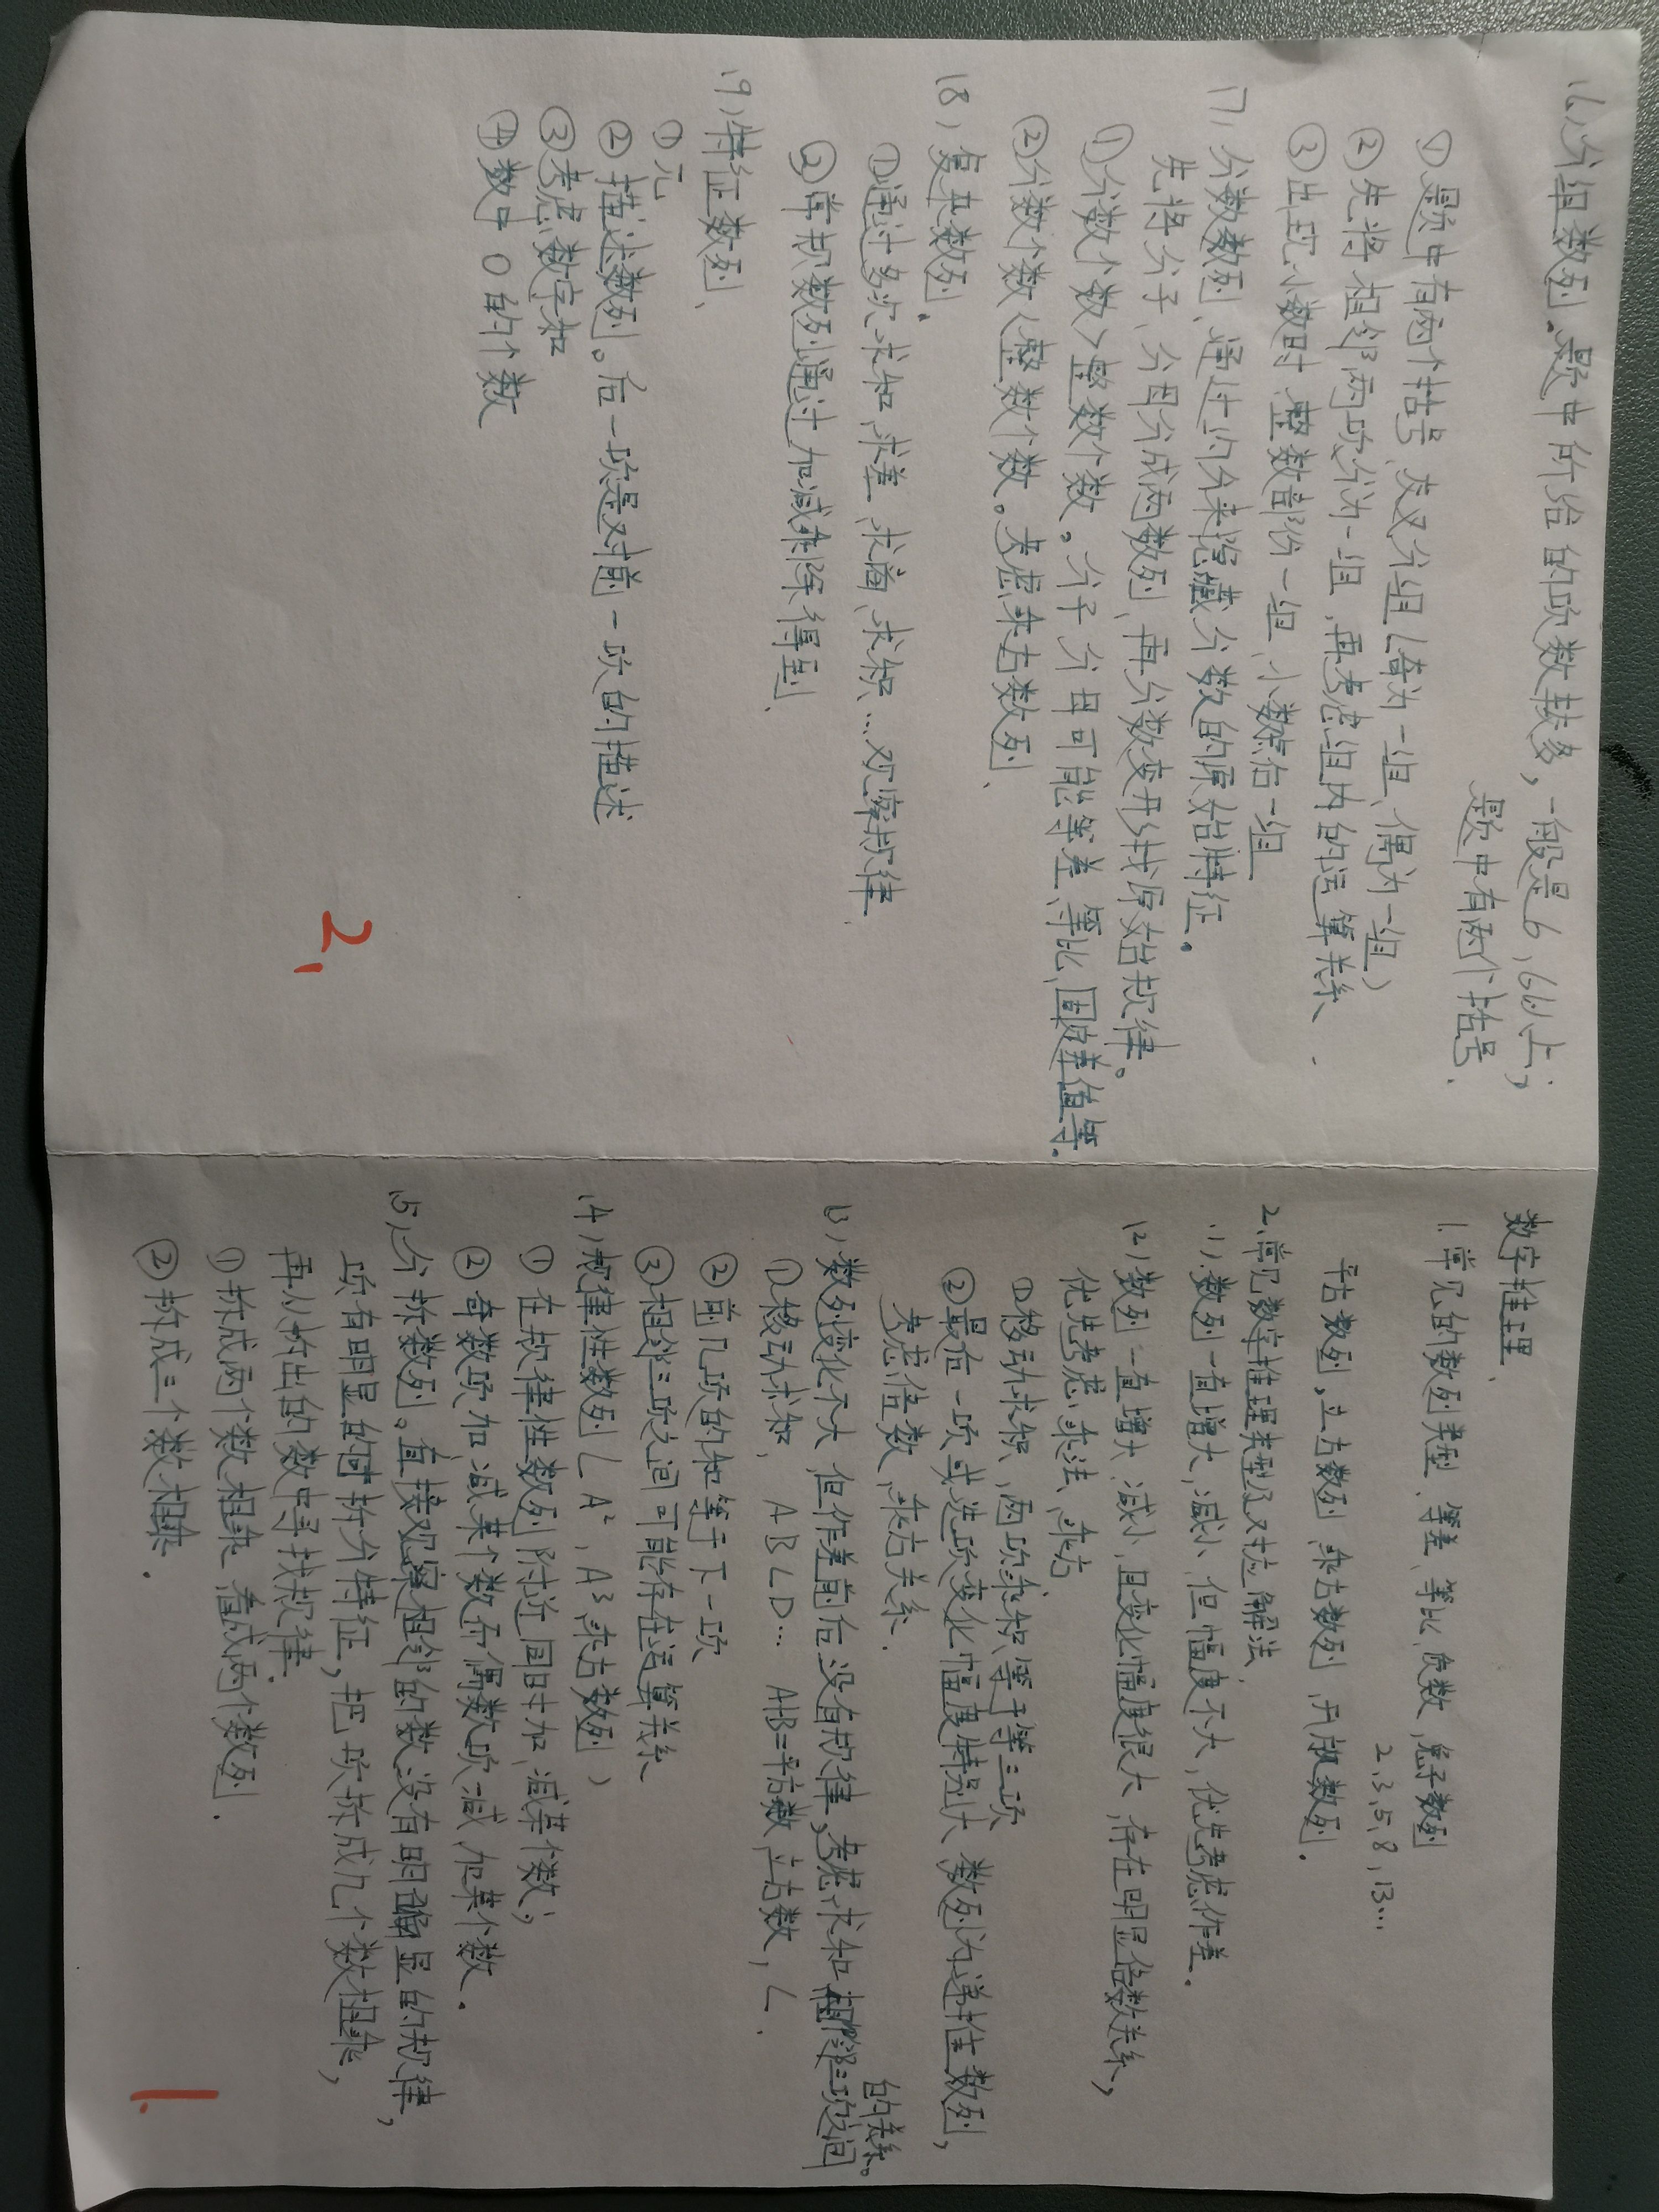 数字推理、
1.常见的数列类型、等差、等比、质数，兔子数列
2,3,5,8,13...
平方数列，立方数列，乘方数列，开根数列。
2.常见数字推理类型及对应解法、
(1)、数列一直增大，减小、但幅度不大，优先考虑作差。
(2)、数列一直增大、减小，且变化幅度很大，存在明显倍数关系，
优先考虑乘法、乘方
①移动求积，两项乘积等于第三项
②最后一项或选项变化幅度特别大、数列为递推数列，
考虑倍数，乘方关系.
(3)、数列变化不大，但作差前后没有规律，考虑求和相邻三项之间
的关系。
①移动求和， ABCD... A+B=平方数，立方数，C.
②前几项的和等于下一项
③相邻三项之间可能存在运算关系
(4)规律性数列(A²，A³，乘方数列)
①在规律性数列附近同时加，减某个数，
②奇数项加，减某个数而偶数项减，加某个数.
(5)、分拆数列。直接观察相邻的数没有明确显的规律，
项有明显的可拆分特征，把项拆成几个数相乘，
再从拆出的数中寻找规律.
①拆成两个数相乘，看成两个数列.
②拆成三个数相乘.
1.
(6)分组数列.题中所给的项数较多，一般是6，6以上，
题中有两个括号.
①题中有两个括号，交叉分组(奇为一组、偶为一组)
②先将相邻两项分为一组，再考虑组内的运算关系、
③出现小数时，整数部份一组，小数点后一组
(7)分数数列、通过约分来隐藏分数的原始特征.
先将分子、分母分成两数列，再分数变形找原始规律。
①分数个数>整数个数。分子分母可能等差，等比，固定差值等.
②分数个数<整数个数。考虑乘方数列、
(8)、复杂数列.
①通过多次求和，求差，求商，求积...观察规律、
②常规数列通过加减乘除得到、
(9)、特征数列、
①元
②描述数列。后一项是对前一项的描述
③考虑数字和
④数中0的个数
2、